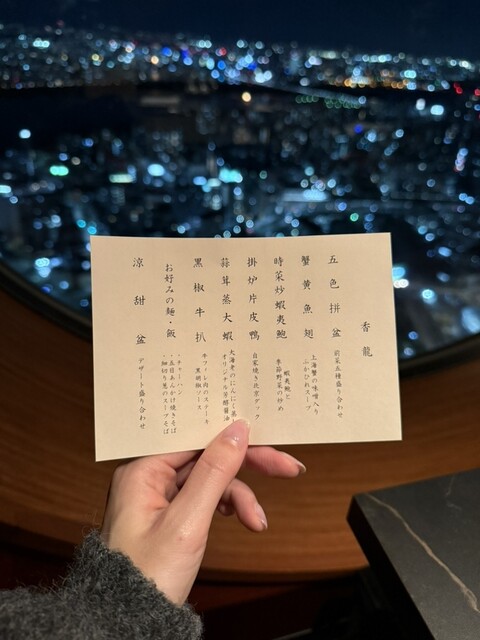 香龍
五色拼盆
前菜五種盛り合わせ
蟹黄魚翅
上海蟹の味噌入り
ふかひれスープ
時菜炒蝦夷鮑
蝦夷鮑と
季節野菜の炒め
掛炉片皮鴨
自家焼き北京ダック
蒜茸蒸大蝦
大海老のにんにく蒸し
オリジナル芳醇醤油
黒椒牛扒
牛フィレ肉のステーキ
黒胡椒ソース
お好みの麺・飯
・チャーハン
・五目あんかけ焼きそば
・細切り葱のスープそば
涼甜盆
デザート盛り合わせ